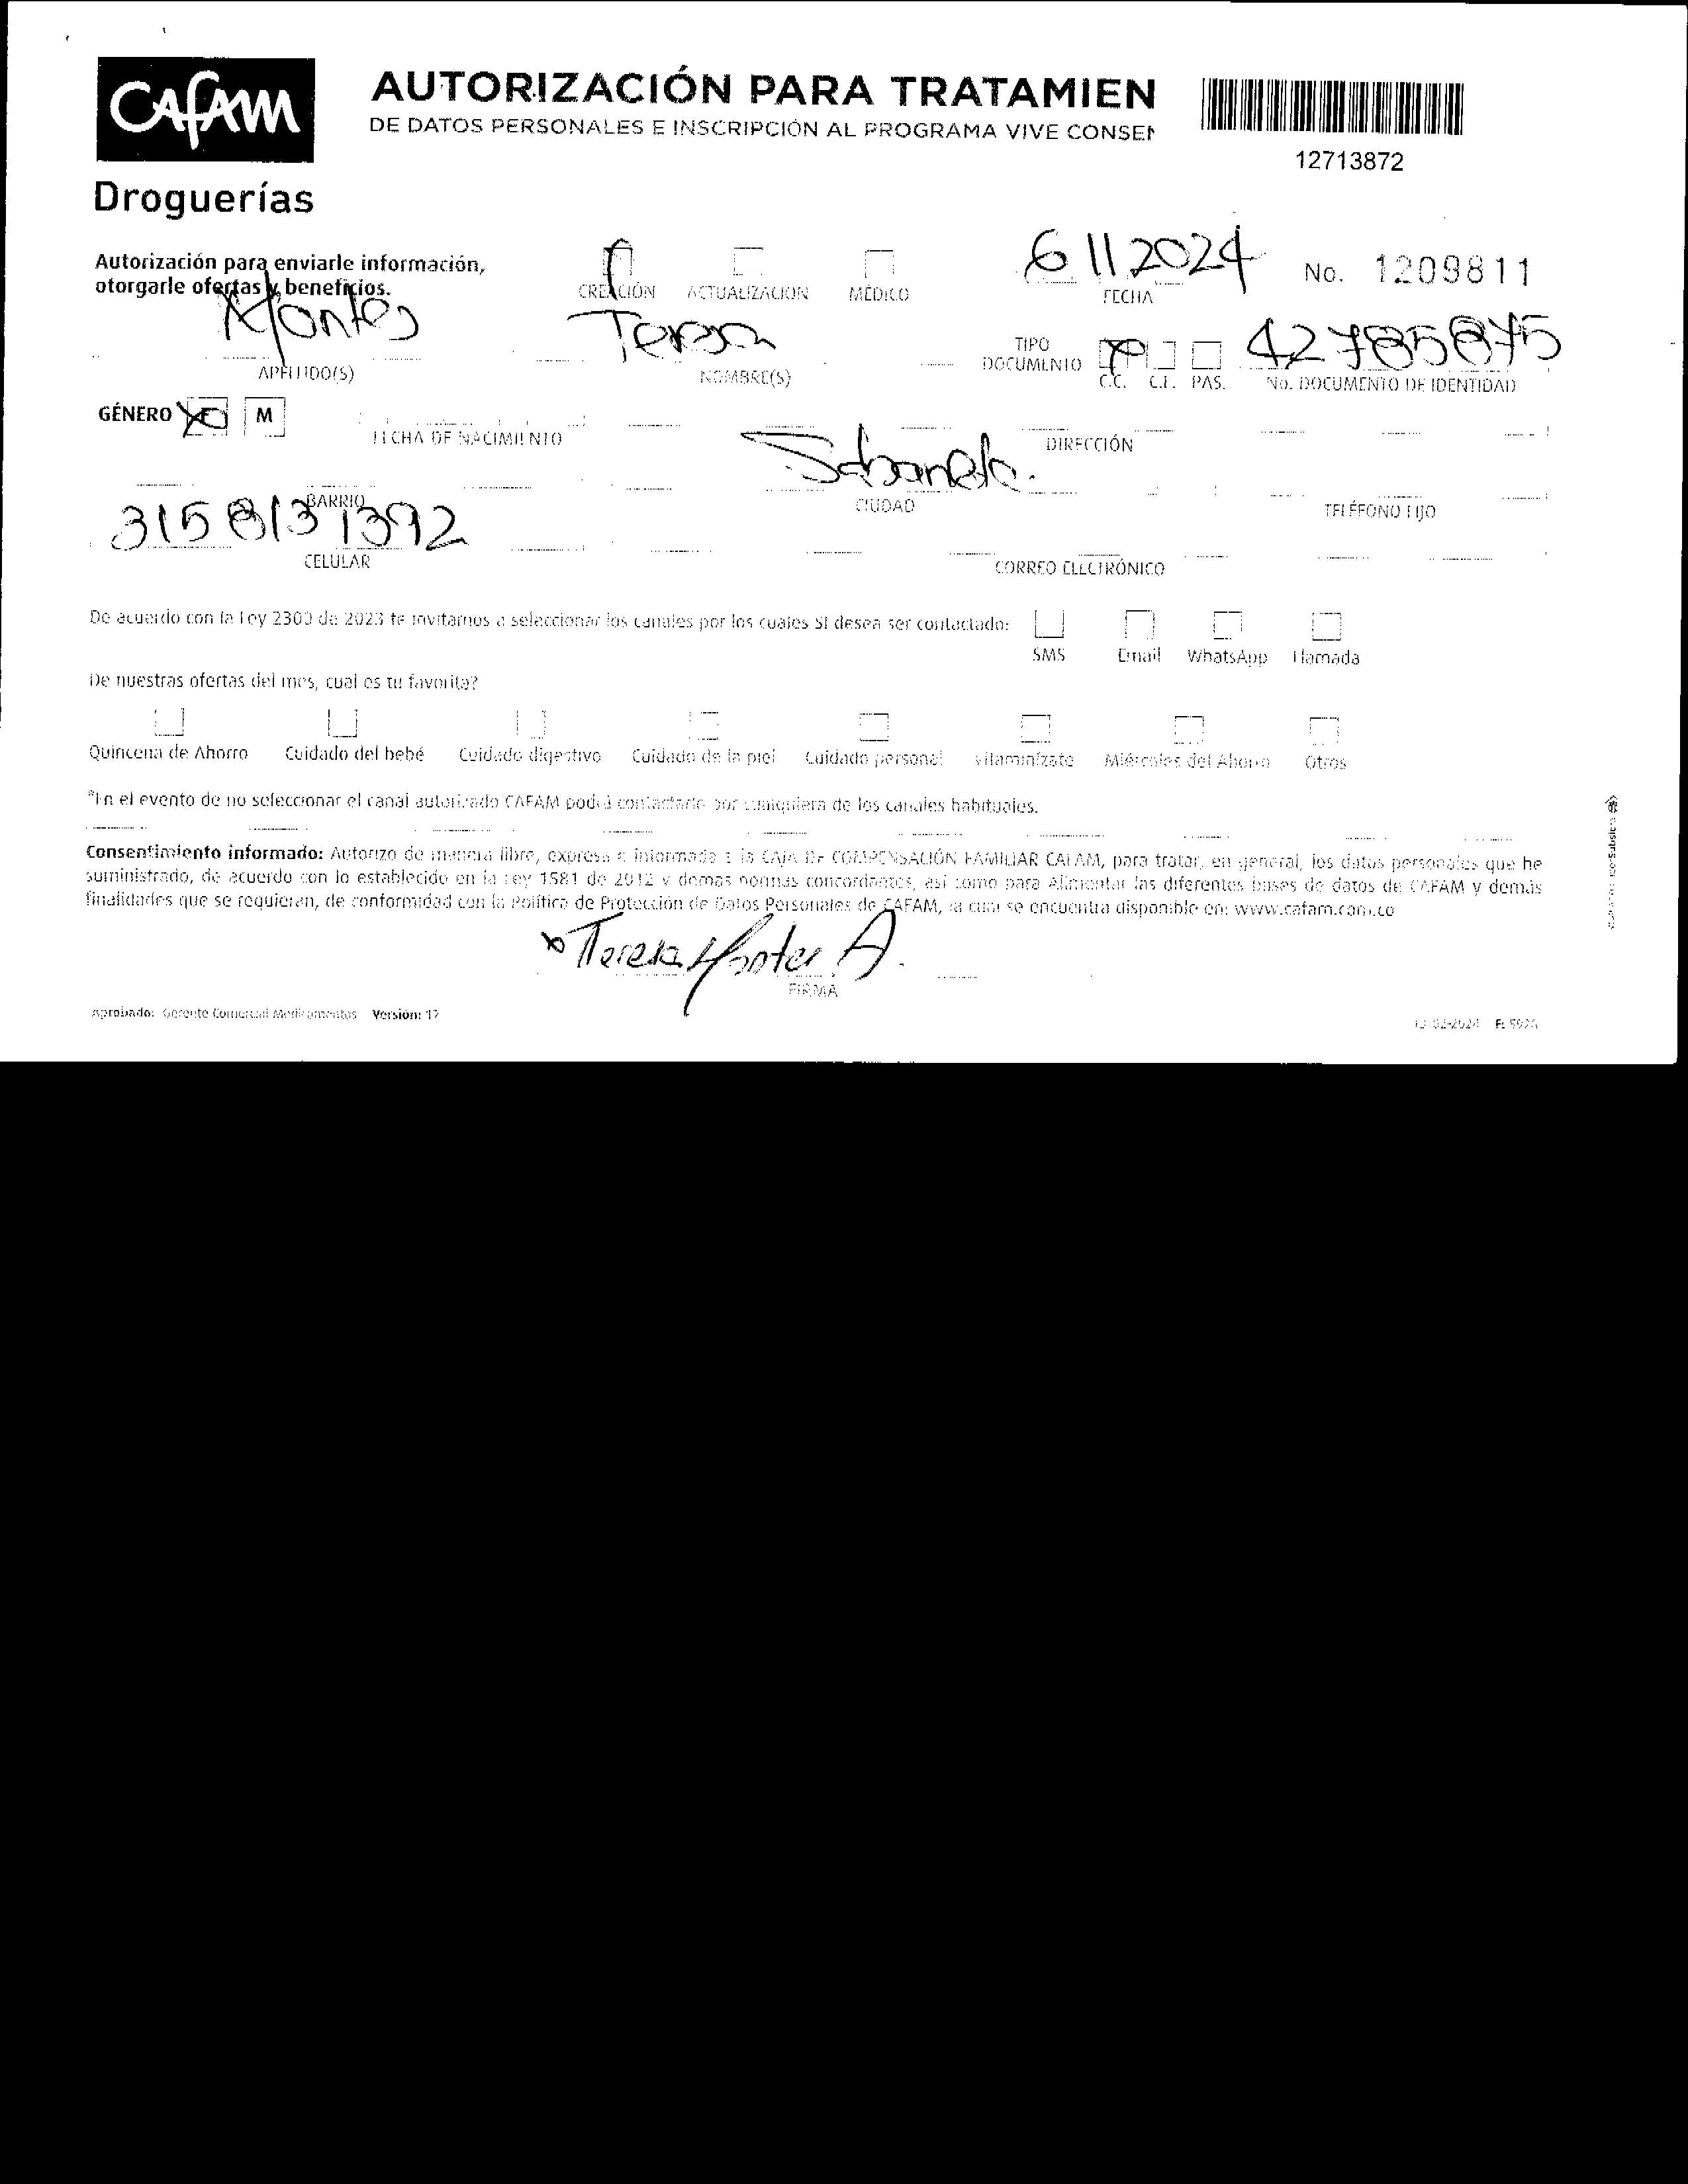 CAFAM
Droguerías
AUTORIZACIÓN PARA TRATAMIEN
DE DATOS PERSONALES E INSCRIPCIÓN AL PROGRAMA VIVE CONSEN
12713872
Autorización para enviarle información,
otorgarle ofertas y beneficios.
CREACIÓN ACTUALIZACIÓN MÉDICO
6 11 2024
FECHA
No. 1209811
Montes Teresa 42785875
APELLIDO(S) NOMBRE(S) TIPO DOCUMENTO C.C. C.E. PAS. No. DOCUMENTO DE IDENTIDAD
GÉNERO F M
FECHA DE NACIMIENTO DIRECCIÓN
Sabaneta.
BARRIO CIUDAD TELÉFONO FIJO
3158131392
CELULAR CORREO ELECTRÓNICO
De acuerdo con la Ley 2300 de 2023 te invitamos a seleccionar los canales por los cuales SI desea ser contactado:
SMS Email WhatsApp Llamada
De nuestras ofertas del mes, cual es tu favorita?
Quincena de Ahorro Cuidado del bebé Cuidado digestivo Cuidado de la piel Cuidado personal Vitamínizate Miércoles del Ahorro Otros
*En el evento de no seleccionar el canal autorizado CAFAM podrá contactarlo por cualquiera de los canales habituales.
Consentimiento informado: Autorizo de manera libre, expresa e informada a la CAJA DE COMPENSACIÓN FAMILIAR CAFAM, para tratar, en general, los datos personales que he
suministrado, de acuerdo con lo establecido en la Ley 1581 de 2012 y demas normas concordantes, así como para Alimentar las diferentes bases de datos de CAFAM y demás
finalidades que se requieran, de conformidad con la Política de Protección de Datos Personales de CAFAM, la cual se encuentra disponible en: www.cafam.com.co
x Teresa Montes A.
FIRMA
Aprobado: Gerente Comercial Medicamentos Versión: 12